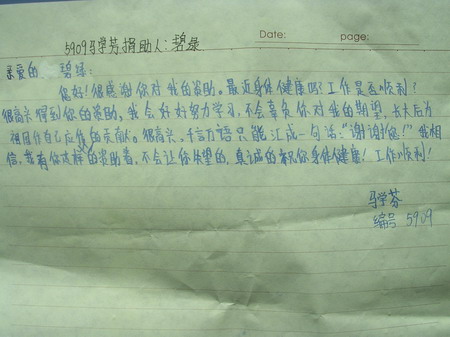 Date: page:
5909马学芬捐助人:碧绿
亲爱的 碧绿:
您好!很感谢你对我的资助。最近身体健康吗?工作是否顺利?
很高兴得到你的资助,我会好好努力学习,不会辜负你对我的期望,长大后为
祖国作自己应作的贡献。很高兴,千言万语只能汇成一句话:"谢谢您!"我相
信,我有你这样的资助者,不会让你失望的,真诚的祝你身体健康!工作顺利!
马学芬
编号 5909